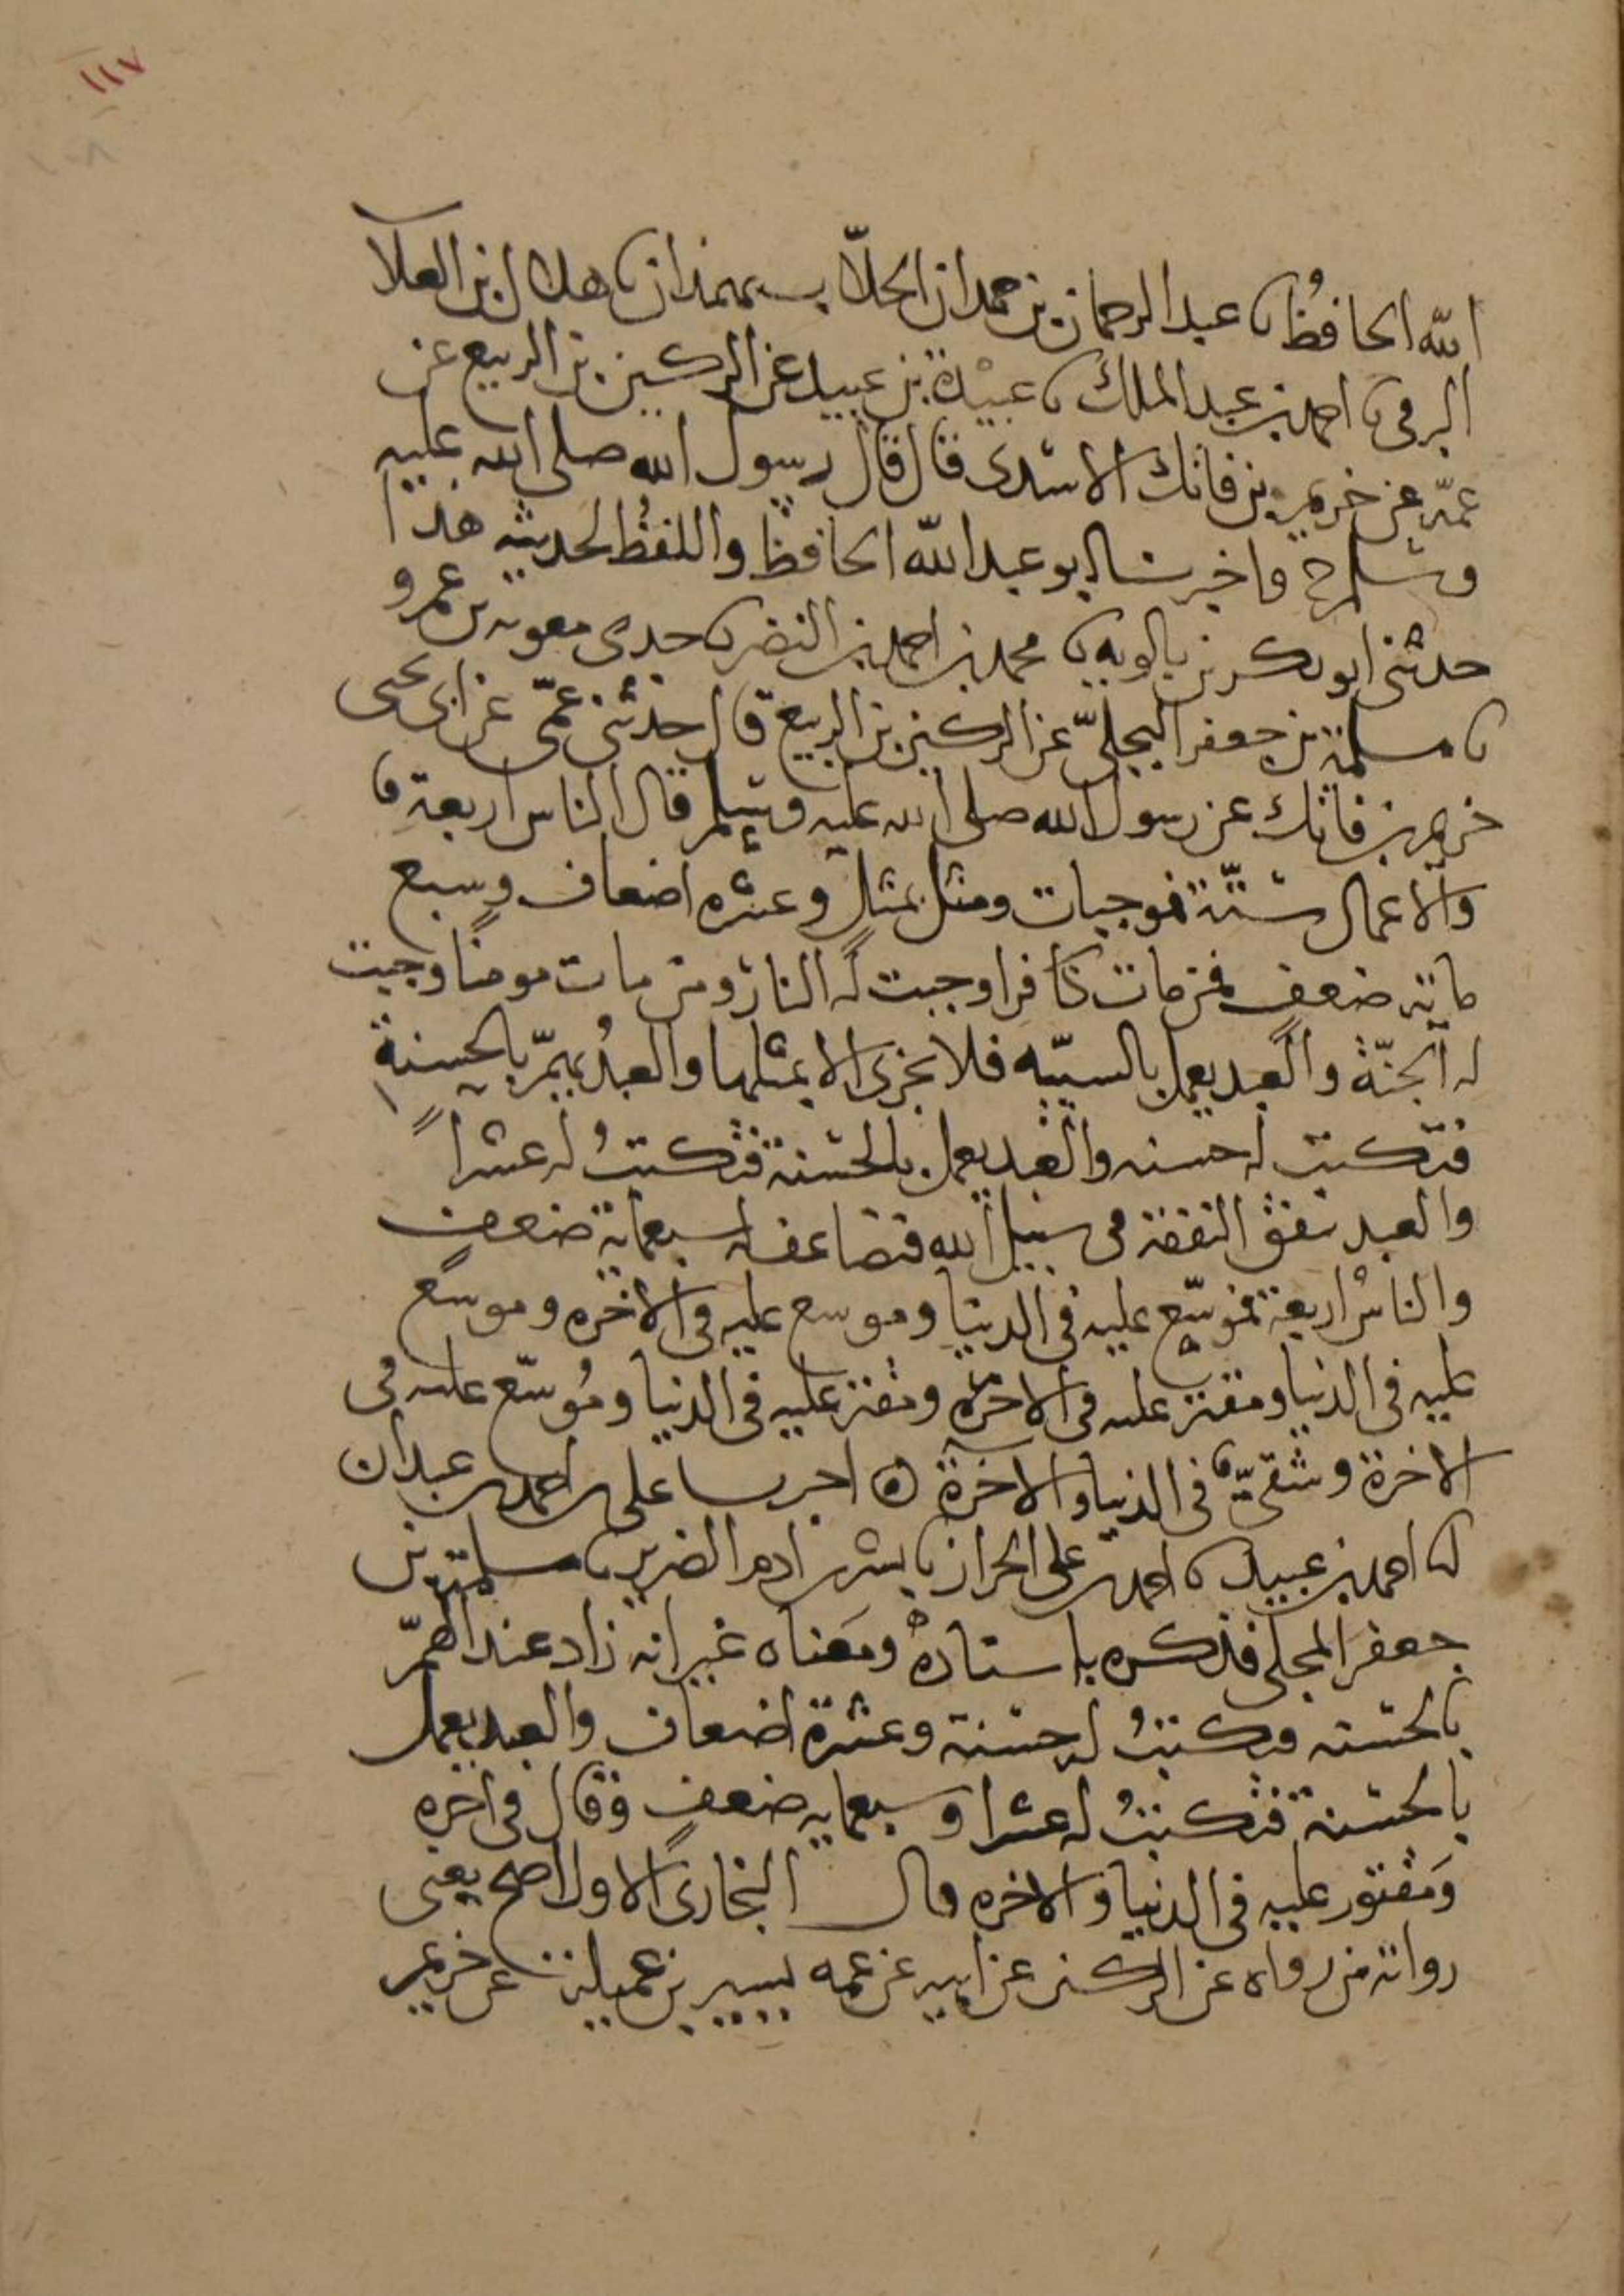 ١١٧
١٠٨
الله الحافظ نا عبد الرحمان بن حمدان الجلاب بهمذان نا هلال بن العلا
الرقي نا احمد بن عبد الملك نا عبيدة بن عبيد عن الركين بن الربيع عن
عمّه عن خريم بن فاتك الاسدى قال قال رسول الله صلى الله عليه
وسلم ح واخبرنا ابو عبد الله الحافظ واللفظ لحديثه هذا
حدثنى ابو بكر بن بالويه نا محمد بن احمد بن النضر نا جدى معوية بن عمرو
نا مسلمة بن جعفر البجلىّ عن الركين بن الربيع قال حدثنى عمّى عن ابى يحيى
خريم بن فاتك عن رسول الله صلى الله عليه وسلم قال الناس اربعة
والاعمال ستّة فموجبات ومثل بمثل وعشره اضعاف وسبع
مائة ضعف فمن مات كافرا وجبت له النار ومن مات مومنا وجبت
له الجنّة والعبد يعمل بالسيّيه فلا يجزى الا بمثلها والعبد يهمّ بالحسنة
فتكتب له حسنه والعبد يعمل بالحسنة فتكتبُ له عشراً
والعبد ينفق النفقة فى سبيل الله فتضاعف له سبعماية ضعف
والناسُ اربعة فموسّع عليه فى الدنيا وموسع عليه فى الاخره وموسع
عليه فى الدنيا ومقتر عليه فى الاخرة ومقتر عليه فى الدنيا ومُوسّع عليه فى
الاخرة وشقىّ فى الدنيا والاخرة ه اخبرنا على بن احمد بن عبدان
انا احمد بن عبيد نا احمد بن على الخراز نا بشر بن ادم الضرير نا مسلمة بن
جعفر البجلى فذكره باسناده ومعناه غير انه زاد عند الهمّ
بالحسنه فتكتبُ له حسنة وعشرة اضعاف والعبد يعمل
بالحسنة فتكتبُ له عشرا وسبعمايه ضعف وقال فى اخره
وَمقتور عليه فى الدنيا والاخره قال البخارى الاول اصح يعنى
رواية من رواه عن الركين عن ابيه عن عمه يسير بن عميلة عن خريم